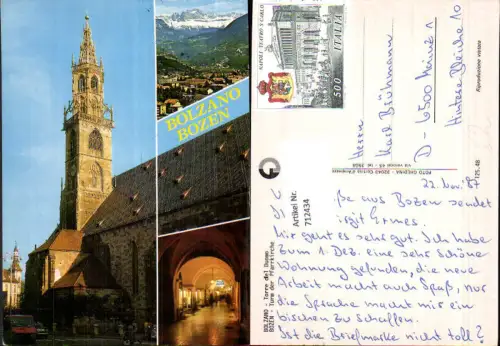 BOLZANO
BOZEN
NAPOLI - TEATRO S. CARLO
500
ITALIA
Herrn
Karl Brühmann
D - 6500 Mainz 1
Hintere Bleiche 10
Riproduzione vietata
125-48
Artikel Nr.
712434
BOLZANO - Torre del Duomo
BOZEN - Turm der Pfarrkirche
22. Nov. 87
aus Bozen sendet
Mir geht es sehr gut. Ich habe
zum 1. Dez. eine sehr schöne
Wohnung gefunden, die neue
Arbeit macht auch Spaß, nur
die Sprache macht mir ein
bischen zu schaffen.
Ist die Briefmarke nicht toll?